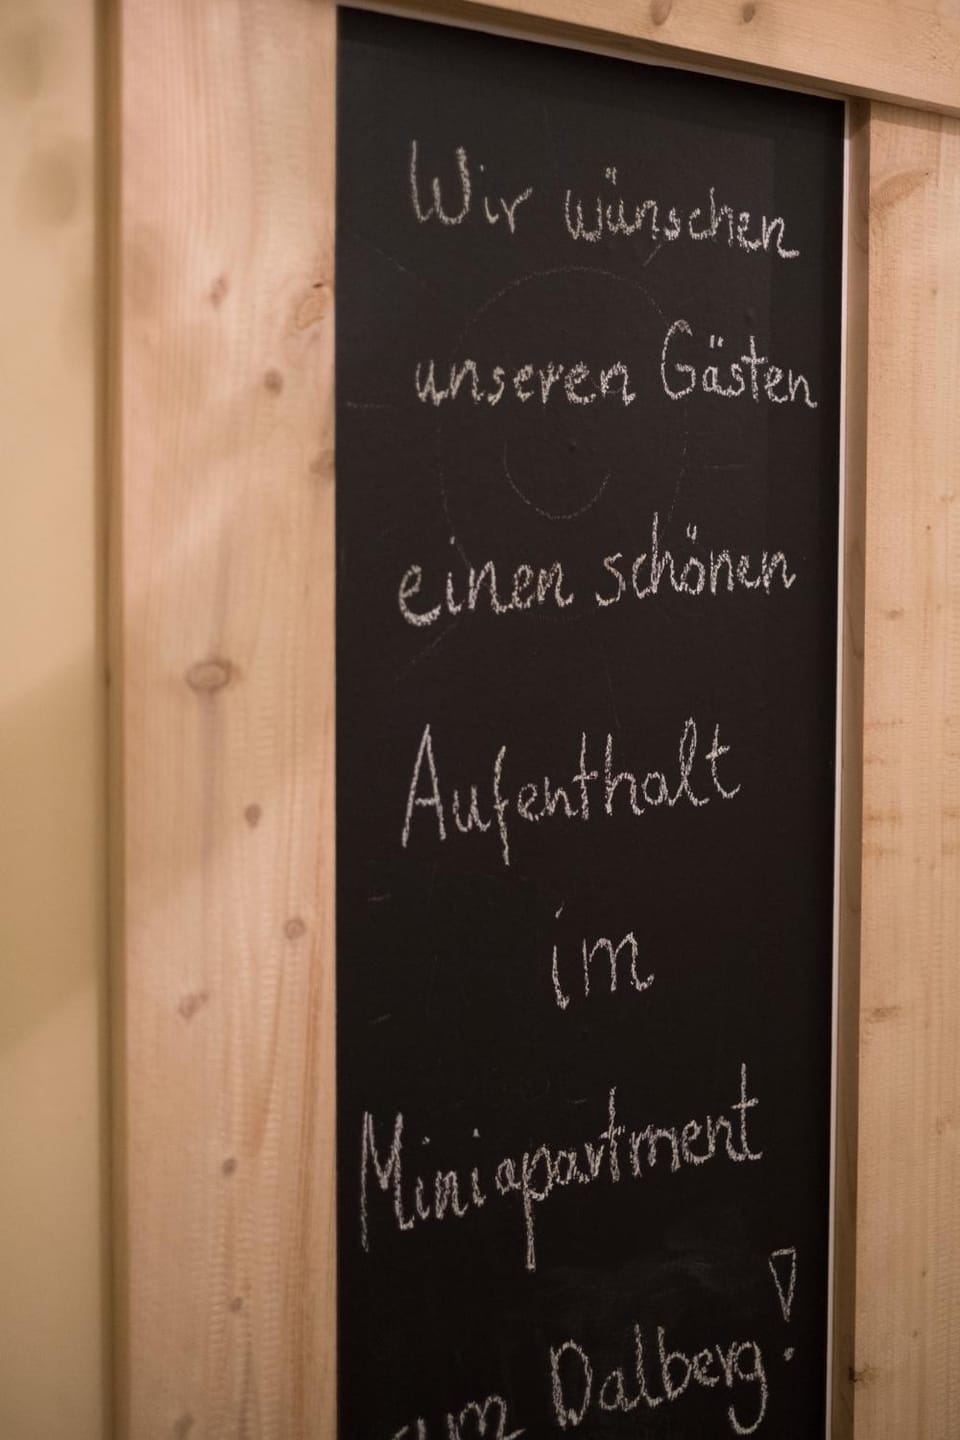 Wir wünschen
unseren Gästen
einen schönen
Aufenthalt
im
Miniapartment
zum Dalberg!